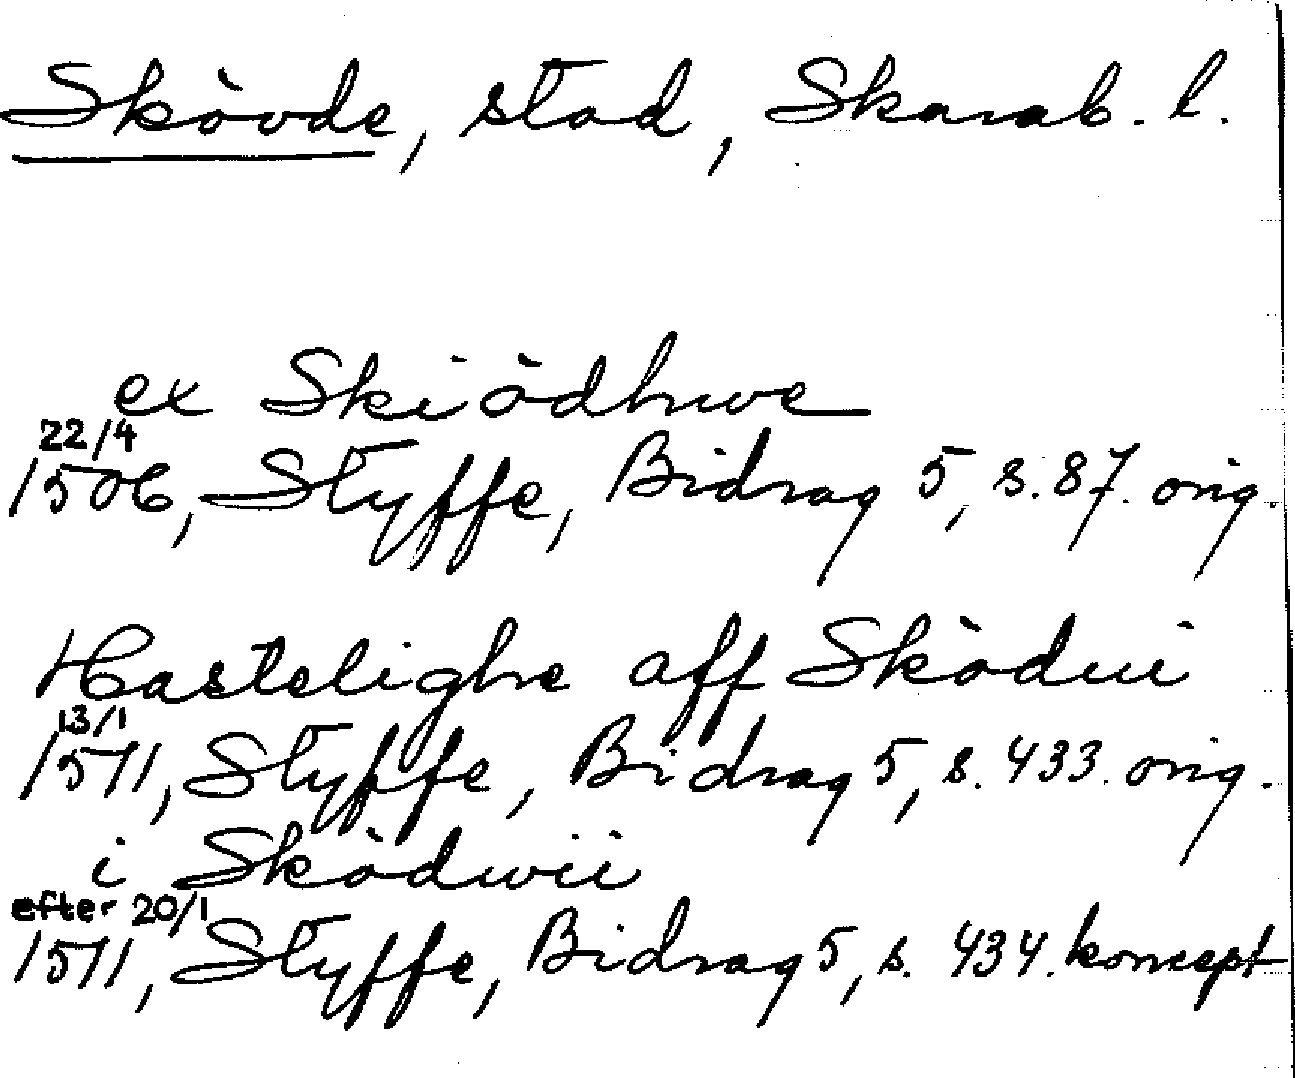 Skövde, stad, Skarab. l.
ex Skiödhwe
22/4
1506, Styffe, Bidrag 5, s. 87. orig.
Hastelighe aff Sködwi
13/1
1511, Styffe, Bidrag 5, s. 433. orig.
i Sködwii
efter 20/1
1511, Styffe, Bidrag 5, s. 434. koncept